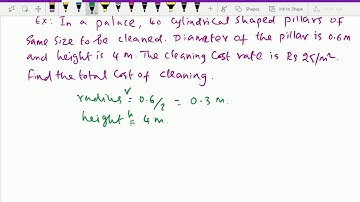 Ex: In a palace, 40 cylindrical shaped pillars of
same size to be cleaned. Diameter of the pillar is 0.6m
and height is 4 m. The cleaning cost rate is Rs 25/m².
Find the total cost of cleaning.
radius r = 0.6/2 = 0.3 m.
height h = 4 m.